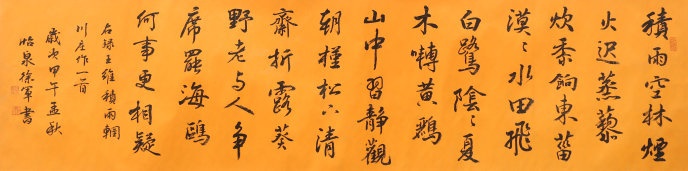 積雨空林煙
火遲蒸藜
炊黍餉東菑
漠〻水田飛
白鷺陰〻夏
木囀黃鸝
山中習靜觀
朝槿松下清
齋折露葵
野老与人爭
席罷海鷗
何事更相疑
右錄王維積雨輞
川庄作一首
歲次甲午孟秋
徐軍書